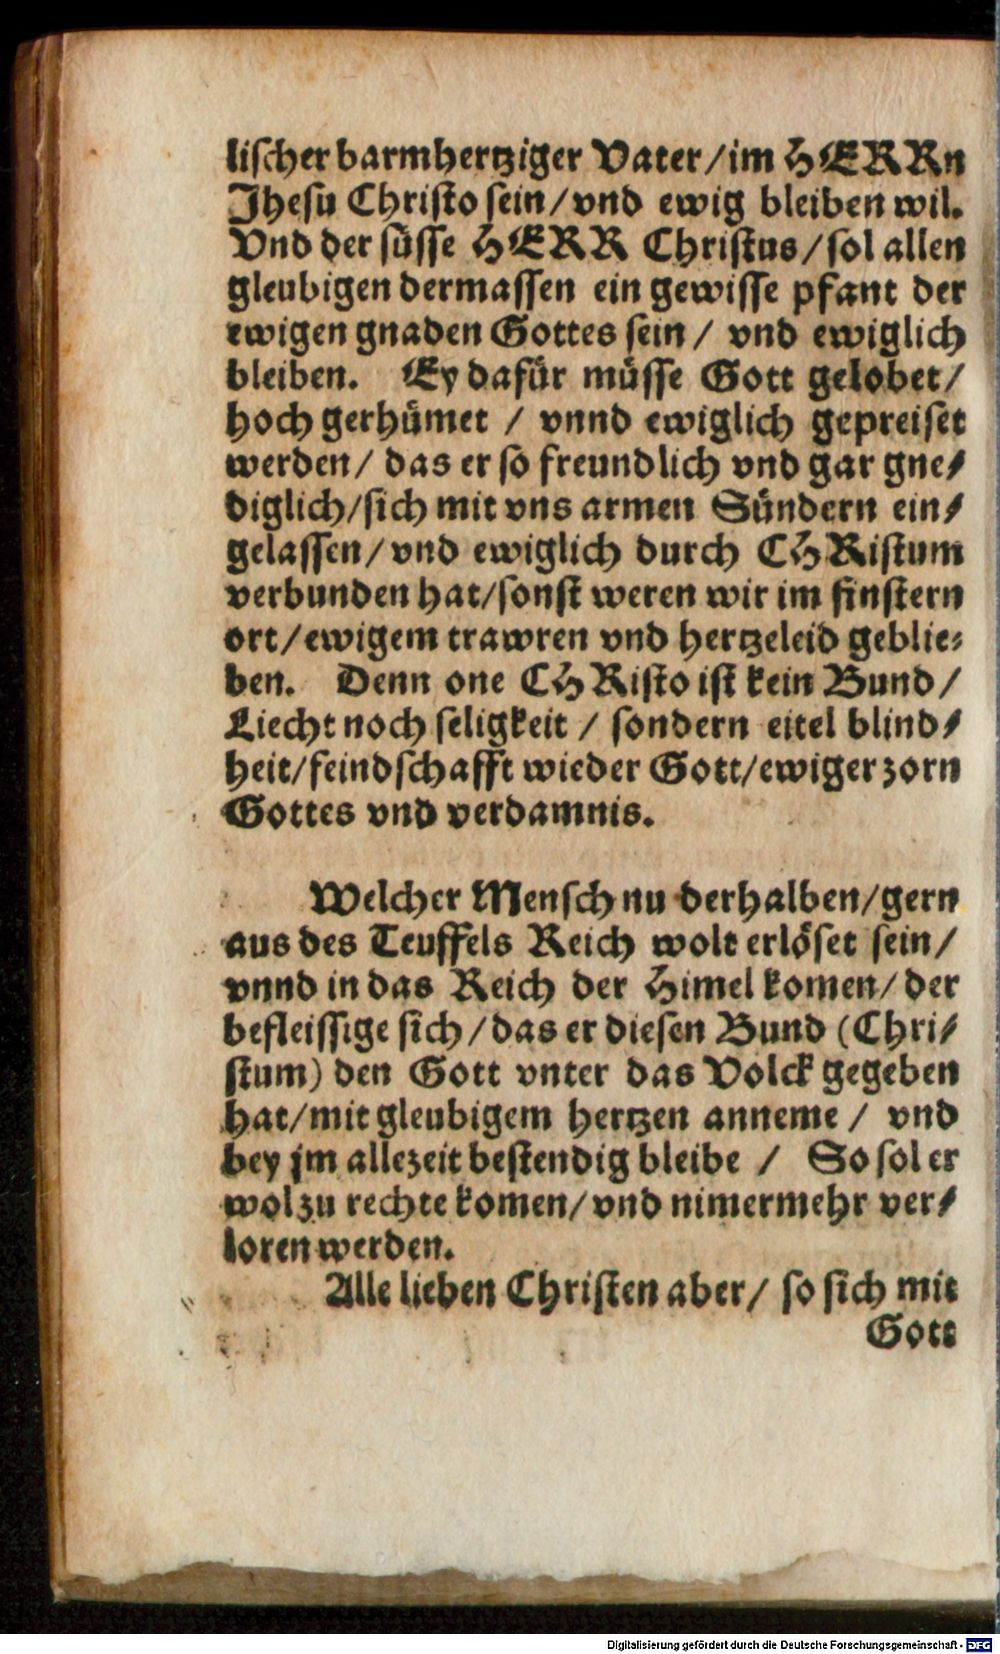 lischer barmhertziger Vater/im HERRn
Jhesu Christo sein/vnd ewig bleiben wil.
Vnd der süsse HERR Christus/sol allen
gleubigen dermassen ein gewisse pfant der
ewigen gnaden Gottes sein/ vnd ewiglich
bleiben. Ey dafür müsse Gott gelobet/
hoch gerhümet / vnnd ewiglich gepreiset
werden/ das er so freundlich vnd gar gne-
diglich/sich mit vns armen Sündern ein-
gelassen/vnd ewiglich durch CHRistum
verbunden hat/sonst weren wir im finstern
ort/ewigem trawren vnd hertzeleid geblie-
ben. Denn one CHRisto ist kein Bund/
Liecht noch seligkeit / sondern eitel blind-
heit/feindschafft wieder Gott/ewiger zorn
Gottes vnd verdamnis.
Welcher Mensch nu derhalben/gern
aus des Teuffels Reich wolt erlöset sein/
vnnd in das Reich der Himel komen/der
befleissige sich/das er diesen Bund (Chri-
stum) den Gott vnter das Volck gegeben
hat/mit gleubigem hertzen anneme / vnd
bey jm allezeit bestendig bleibe / So sol er
wol zu rechte komen/vnd nimermehr ver-
loren werden.
Alle lieben Christen aber/ so sich mit
Gott
Digitalisierung gefördert durch die Deutsche Forschungsgemeinschaft - DFG